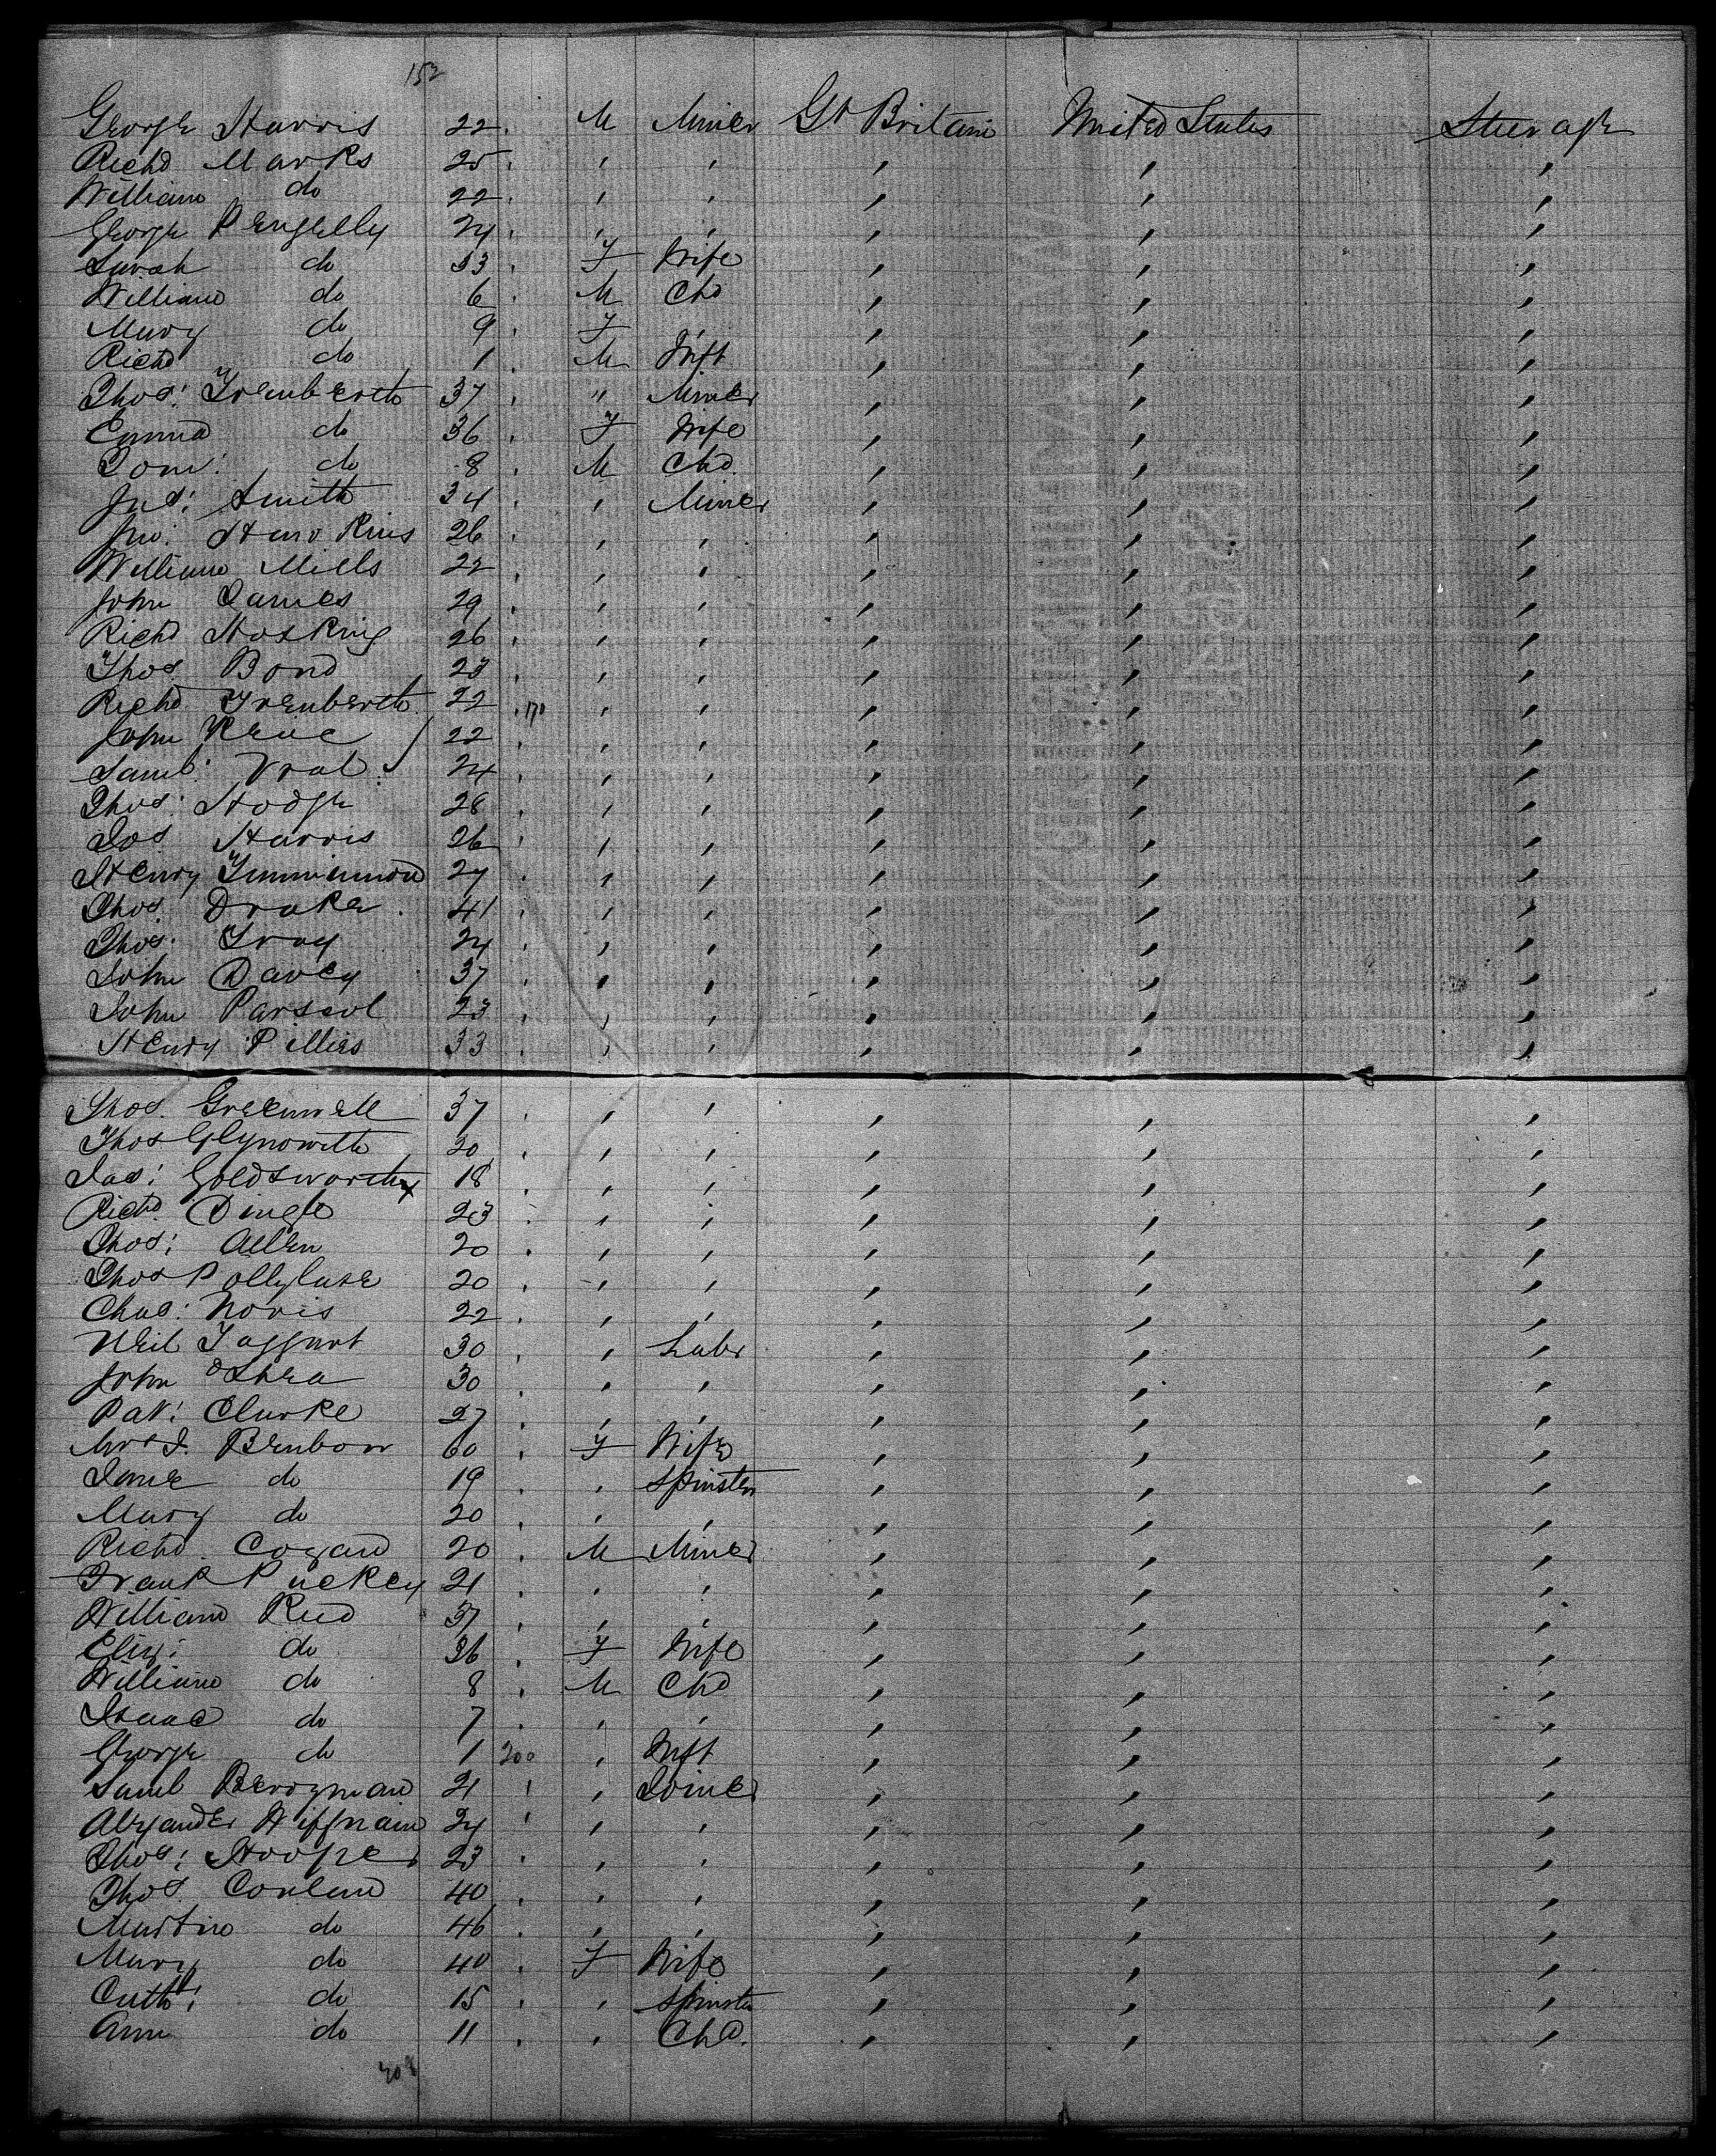 152
George Harris 22 M Miner Gt Britain United States Steerage
Richd Marks 25 , , , , ,
William do 22 , , , , ,
George Pengelly 24 , , , , ,
Sarah do 33 F Wife , , ,
William do 6 M Chd , , ,
Mary do 9 F , , , ,
Richd do 1 M Inft , , ,
Thos: Tremberth 37 " Miner , , ,
Emma do 36 F Wife , , ,
do 8 M Chd , , ,
Jas: Smith 34 , Miner , , ,
Jno: Hawkins 26 , , , , ,
William Mills 22 , , , , ,
John James 29 , , , , ,
Richd Hosking 26 , , , , ,
Thos Bond 23 , , , , ,
Richd Tremberth 22 170 , , , , ,
John 22 , , , , ,
Saml: Veal 24 , , , , ,
Thos: Hodge 28 , , , , ,
Jos Harris 26 , , , , ,
Henry 27 , , , , ,
Thos. Drake 41 , , , , ,
Thos. Tray 24 , , , , ,
John Davey 37 , , , , ,
John 23 , , , , ,
Henry Pillies 33 , , , , ,
Thos. Greenwell 37 , , , , ,
Thos Glynowith 20 , , , , ,
Jas: Goldsworthy 18 , , , , ,
Richd Dingle 23 , , , , ,
Thos: Allen 20 , , , , ,
Thos Pollglase 20 , , , , ,
Chas: Noris 22 , , , , ,
Neil Taggart 30 , Labr , , ,
John OShea 30 , , , , ,
Pat: Clarke 27 , , , , ,
Mrs J. Benbow 60 F Wife , , ,
Jane do 19 , Spinster , , ,
Mary do 20 , , , , ,
Richd Cogan 20 M Miner , , ,
Frank Puckey 21 , , , , ,
William Reed 37 , , , , ,
Eliz: do 36 F Wife , , ,
William do 8 M Chd , , ,
Isaac do 7 , , , , ,
George do 1 200 , Inft , , ,
Saml Berryman 21 , Joiner , , ,
Alexander 24 , , , , ,
Thos: Hooper 23 , , , , ,
Thos. Conlan 40 , , , , ,
Martin do 46 , , , , ,
Mary do 40 F Wife , , ,
Cath: do 15 , Spinster , , ,
Ann do 11 , Chd. , , ,
208